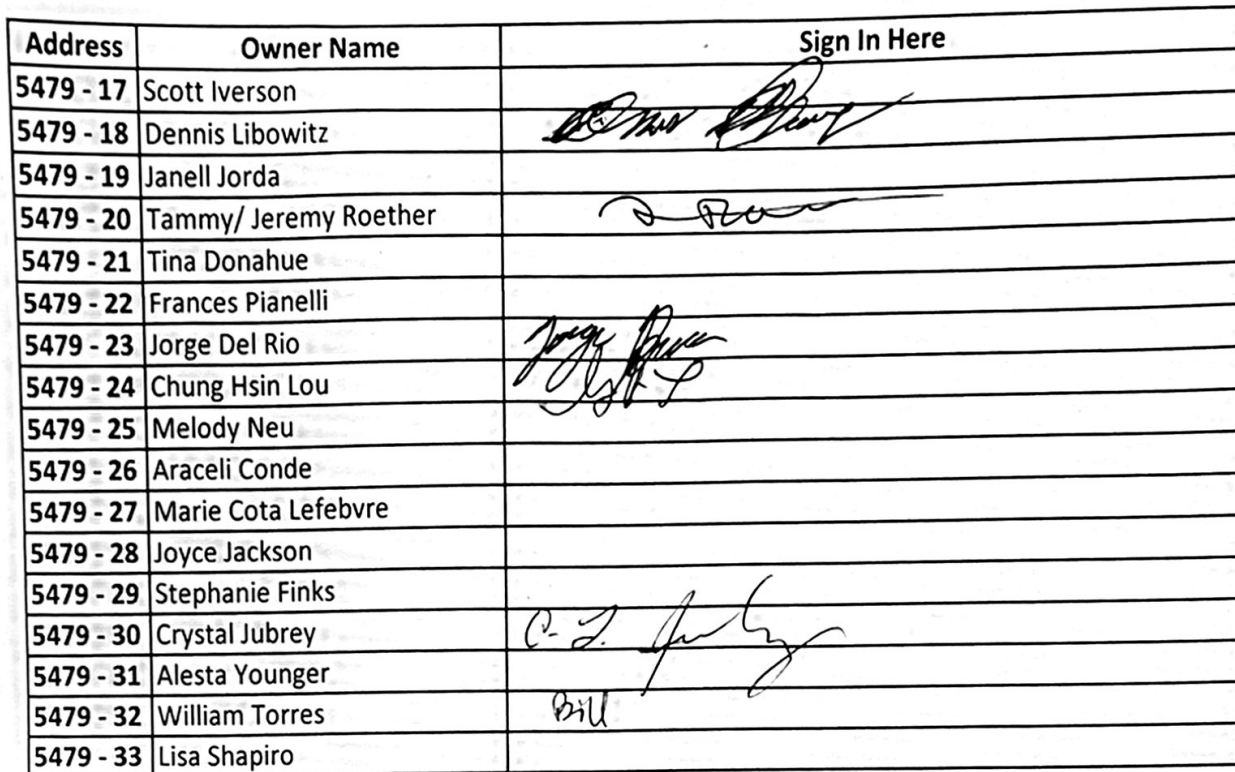 Address Owner Name Sign In Here
5479 - 17 Scott Iverson
5479 - 18 Dennis Libowitz
5479 - 19 Janell Jorda
5479 - 20 Tammy/ Jeremy Roether
5479 - 21 Tina Donahue
5479 - 22 Frances Pianelli
5479 - 23 Jorge Del Rio Jorge
5479 - 24 Chung Hsin Lou
5479 - 25 Melody Neu
5479 - 26 Araceli Conde
5479 - 27 Marie Cota Lefebvre
5479 - 28 Joyce Jackson
5479 - 29 Stephanie Finks
5479 - 30 Crystal Jubrey
5479 - 31 Alesta Younger
5479 - 32 William Torres Bill
5479 - 33 Lisa Shapiro